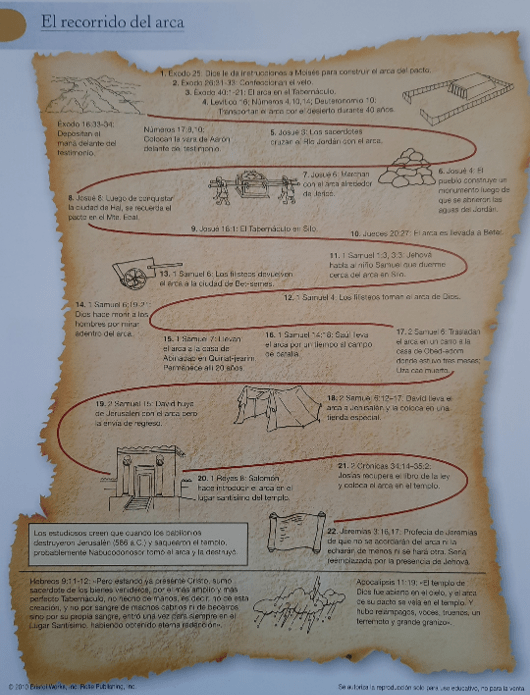 El recorrido del arca
1. Éxodo 25: Dios le da instrucciones a Moisés para construir el arca del pacto.
2. Éxodo 26:31-33: Confeccionan el velo.
3. Éxodo 40:1-21: El arca en el Tabernáculo.
4. Levítico 16; Números 4,10,14; Deuteronomio 10:
Transportan el arca por el desierto durante 40 años.
Éxodo 16:33-34:
Depositan el
maná delante del
testimonio.
Números 17:8,10:
Colocan la vara de Aarón
delante del testimonio.
5. Josué 3: Los sacerdotes
cruzan el Río Jordán con el arca.
6. Josué 4: El
pueblo construye un
monumento luego de
que se abrieron las
aguas del Jordán.
7. Josué 6: Marchan
con el arca alrededor
de Jericó.
8. Josué 8: Luego de conquistar
la ciudad de Hai, se recuerda el
pacto en el Mte. Ebal.
9. Josué 18:1: El Tabernáculo en Silo.
10. Jueces 20:27: El arca es llevada a Betel.
11. 1 Samuel 1:3, 3:3: Jehová
habla al niño Samuel que duerme
cerca del arca en Silo.
12. 1 Samuel 4: Los filisteos toman el arca de Dios.
13. 1 Samuel 6: Los filisteos devuelven
el arca a la ciudad de Bet-semes.
14. 1 Samuel 6:19-21:
Dios hace morir a los
hombres por mirar
adentro del arca.
15. 1 Samuel 7: Llevan
el arca a la casa de
Abinadab en Quiriat-jearim.
Permanece allí 20 años.
16. 1 Samuel 14:18: Saúl lleva
el arca por un tiempo al campo
de batalla.
17. 2 Samuel 6: Trasladan
el arca en un carro a la
casa de Obed-edom
donde estuvo tres meses;
Uza cae muerto.
18. 2 Samuel 6:12-17: David lleva el
arca a Jerusalén y la coloca en una
tienda especial.
19. 2 Samuel 15: David huye
de Jerusalén con el arca pero
la envía de regreso.
20. 1 Reyes 8: Salomón
hace introducir el arca en el
lugar santísimo del templo.
21. 2 Crónicas 34:14-35:2:
Josías recupera el libro de la ley
y coloca el arca en el templo.
22. Jeremías 3:16,17: Profecía de Jeremías
de que no se acordarán del arca ni la
echarán de menos ni se hará otra. Sería
reemplazada por la presencia de Jehová.
Los estudiosos creen que cuando los babilonios
destruyeron Jerusalén (586 a.C.) y saquearon el templo,
probablemente Nabucodonosor tomó el arca y la destruyó.
Hebreos 9:11-12: «Pero estando ya presente Cristo, sumo
sacerdote de los bienes venideros, por el más amplio y más
perfecto Tabernáculo, no hecho de manos, es decir, no de esta
creación, y no por sangre de machos cabríos ni de becerros
sino por su propia sangre, entró una vez para siempre en el
Lugar Santísimo, habiendo obtenido eterna redención».
Apocalipsis 11:19: «El templo de
Dios fue abierto en el cielo, y el arca
de su pacto se veía en el templo. Y
hubo relámpagos, voces, truenos, un
terremoto y grande granizo».
Se autoriza la reproducción solo para uso educativo, no para la venta.